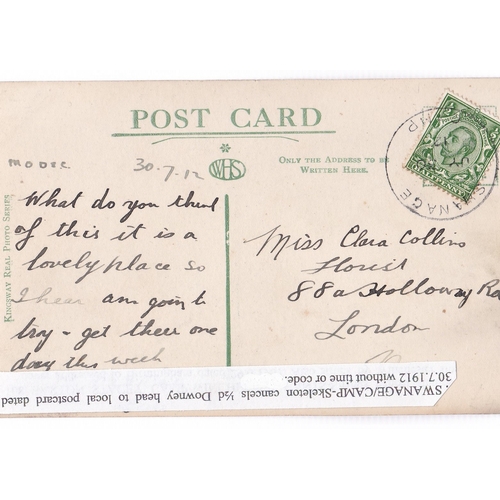 POST CARD
MODEC
30.7.12
WHS
ONLY THE ADDRESS TO BE
WRITTEN HERE.
KINGSWAY REAL PHOTO SERIES
What do you think
of this it is a
lovely place so
I hear am going to
try - get there one
day this week
Miss Clara Collins
Florist
88a Holloway Ro
London
N
SWANAGE CAMP
HALFPENNY
SWANAGE/CAMP-Skeleton cancels ½d Downey head to local postcard dated
30.7.1912 without time or code.